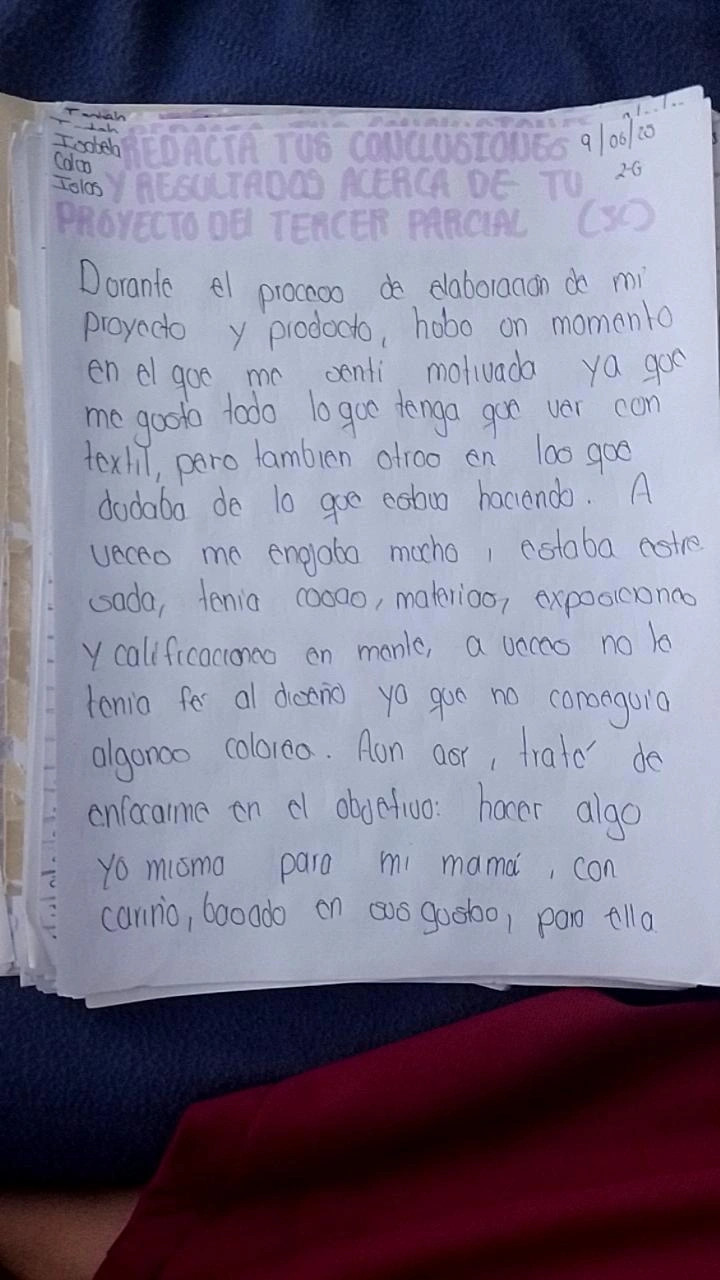 Isabela
Colao
Islas
9/06/20
2-G
REDACTA TUS CONCLUSIONES
Y RESULTADOS ACERCA DE TU
PROYECTO DEL TERCER PARCIAL (SC)
Durante el proceso de elaboración de mi
proyecto y producto, hubo un momento
en el que me senti motivada ya que
me gusta todo lo que tenga que ver con
textil, pero tambien otros en los que
dudaba de lo que estaba haciendo. A
veces me enojaba mucho, estaba estre
sada, tenia cosas, materias, exposiciones
y calificaciones en mente, a veces no le
tenia fe al diseño ya que no conseguia
algunos colores. Aun así, traté de
enfocarme en el objetivo: hacer algo
yo misma para mi mamá, con
cariño, basado en sus gustos, para ella